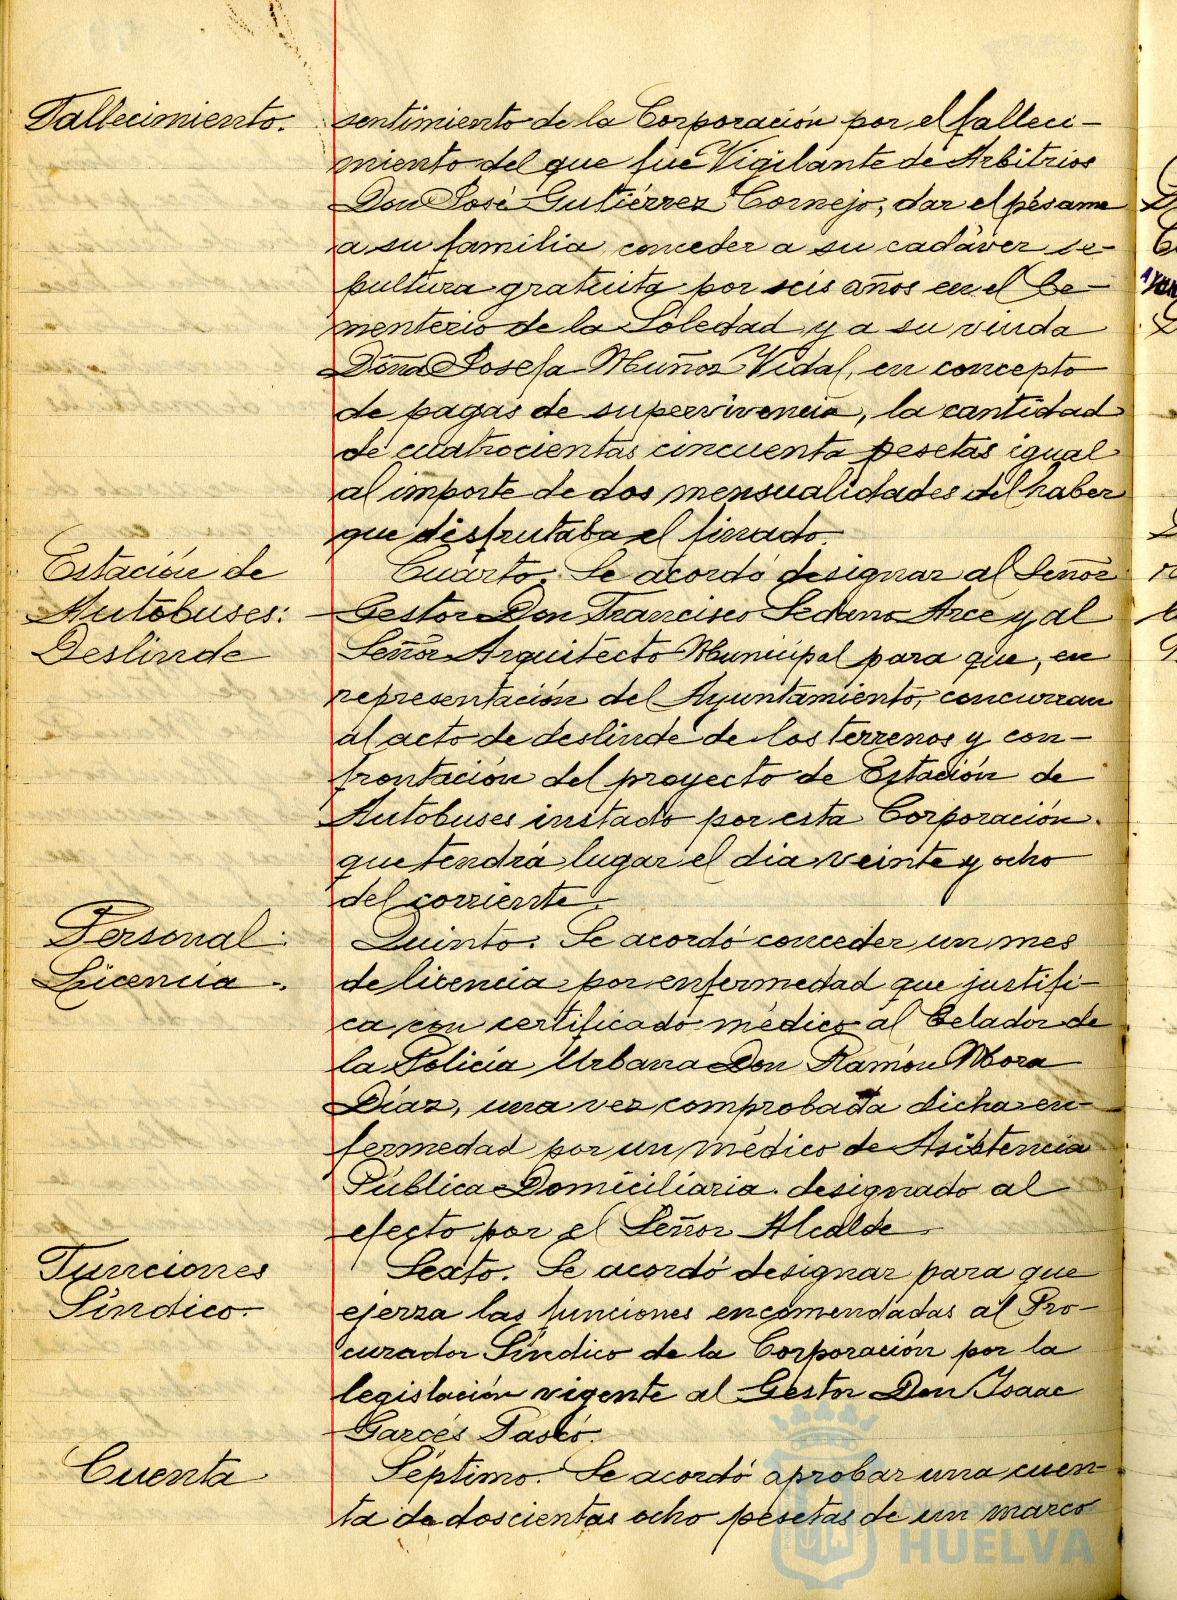 Fallecimiento.
sentimiento de la Corporación por el falleci-
miento del que fue Vigilante de Arbitrios
Don José Gutiérrez Cornejo, dar el pésame
a su familia, conceder a su cadáver se-
pultura gratuita por seis años en el Ce-
menterio de la Soledad y a su viuda
Doña Josefa Muñoz Vidal, en concepto
de pagas de supervivencia, la cantidad
de cuatrocientas cincuenta pesetas igual
al importe de dos mensualidades del haber
que disfrutaba el finado.
Estación de
Autobuses:
Deslinde
Cuarto. Se acordó designar al Señor
Gestor Don Francisco Sedano Arce y al
Señor Arquitecto Municipal para que, en
representación del Ayuntamiento, concurran
al acto de deslinde de los terrenos y con-
frontación del proyecto de Estación de
Autobuses instado por esta Corporación.
que tendrá lugar el dia veinte y ocho
del corriente.
Personal:
Licencia.
Quinto. Se acordó conceder un mes
de licencia por enfermedad que justifi-
ca con certificado médico al Celador de
la Policía Urbana Don Ramón Mora
Díaz, una vez comprobada dicha en-
fermedad por un médico de Asistencia
Pública Domiciliaria designado al
efecto por el Señor Alcalde.
Funciones
Síndico.
Sexto. Se acordó designar para que
ejerza las funciones encomendadas al Pro-
curador Síndico de la Corporación por la
legislación vigente al Gestor Don Isaac
Garcés
Cuenta
Séptimo. Se acordó aprobar una cuen-
ta de doscientas ocho pesetas de un marco
HUELVA